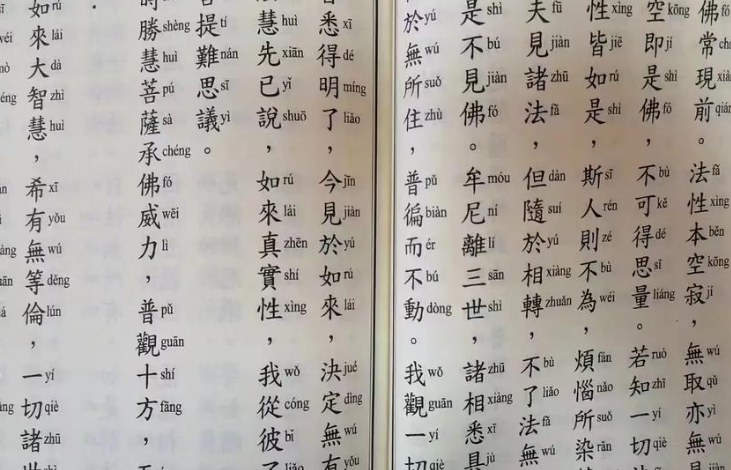 佛常現前。法性本空寂，無取亦無
fó xiàn qián fǎ xìng běn kōng jí wú qǔ yì wú
空即是佛，不可得思量。若知一切
kōng jí shì fó bù kě dé sī liáng ruò zhī yí qiè
性皆如是，斯人則不為，煩惱所染
xìng jiē rú shì sī rén zé bù wéi fán nǎo suǒ rǎn
夫見諸法，但隨於相轉，不了法無
fū jiàn zhū fǎ dàn suí yú xiàng zhuǎn bù liǎo fǎ wú
是不見佛。牟尼離三世，諸相悉具
shì bú jiàn fó móu ní lí sān shì zhū xiàng xī jù
於無所住，普徧而不動。我觀一切
yú wú suǒ zhù pǔ biàn ér bú dòng wǒ guān yí qiè
悉得明了，今見於如來，決定無有
xī dé míng liǎo jīn jiàn yú rú lái jué dìng wú yǒu
慧先已說，如來真實性，我從彼了
huì xiān yǐ shuō rú lái zhēn shí xìng wǒ cóng bǐ liǎo
提難思議。
tí nán sī yì
時勝慧菩薩承佛威力，普觀十方，
shí shèng huì pú sà chéng fó wēi lì pǔ guān shí fāng
如來大智慧，希有無等倫，一切諸
rú lái dà zhì huì xī yǒu wú děng lún yí qiè zhū